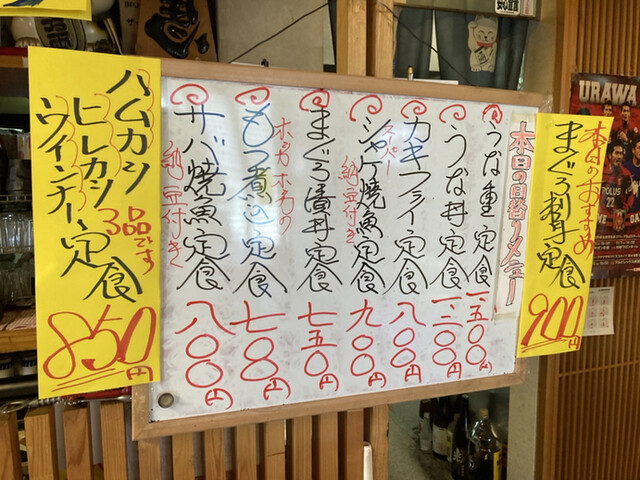 本日のおすすめ
まぐろ丼定食
900円
本日の日替りメニュー
うな重定食 一、五〇〇円
うな丼定食 一、二〇〇円
カキフライ定食 八〇〇円
スーパー
シャケ焼魚定食 九〇〇円
納豆付き
まぐろ漬丼定食 七五〇円
ホッカホカの
もつ煮込定食 七〇〇円
サバ焼魚定食 八〇〇円
納豆付き
ハムカツ
ヒレカツ 3品です
ウインナー定食
850円
URAWA
POLUS
22